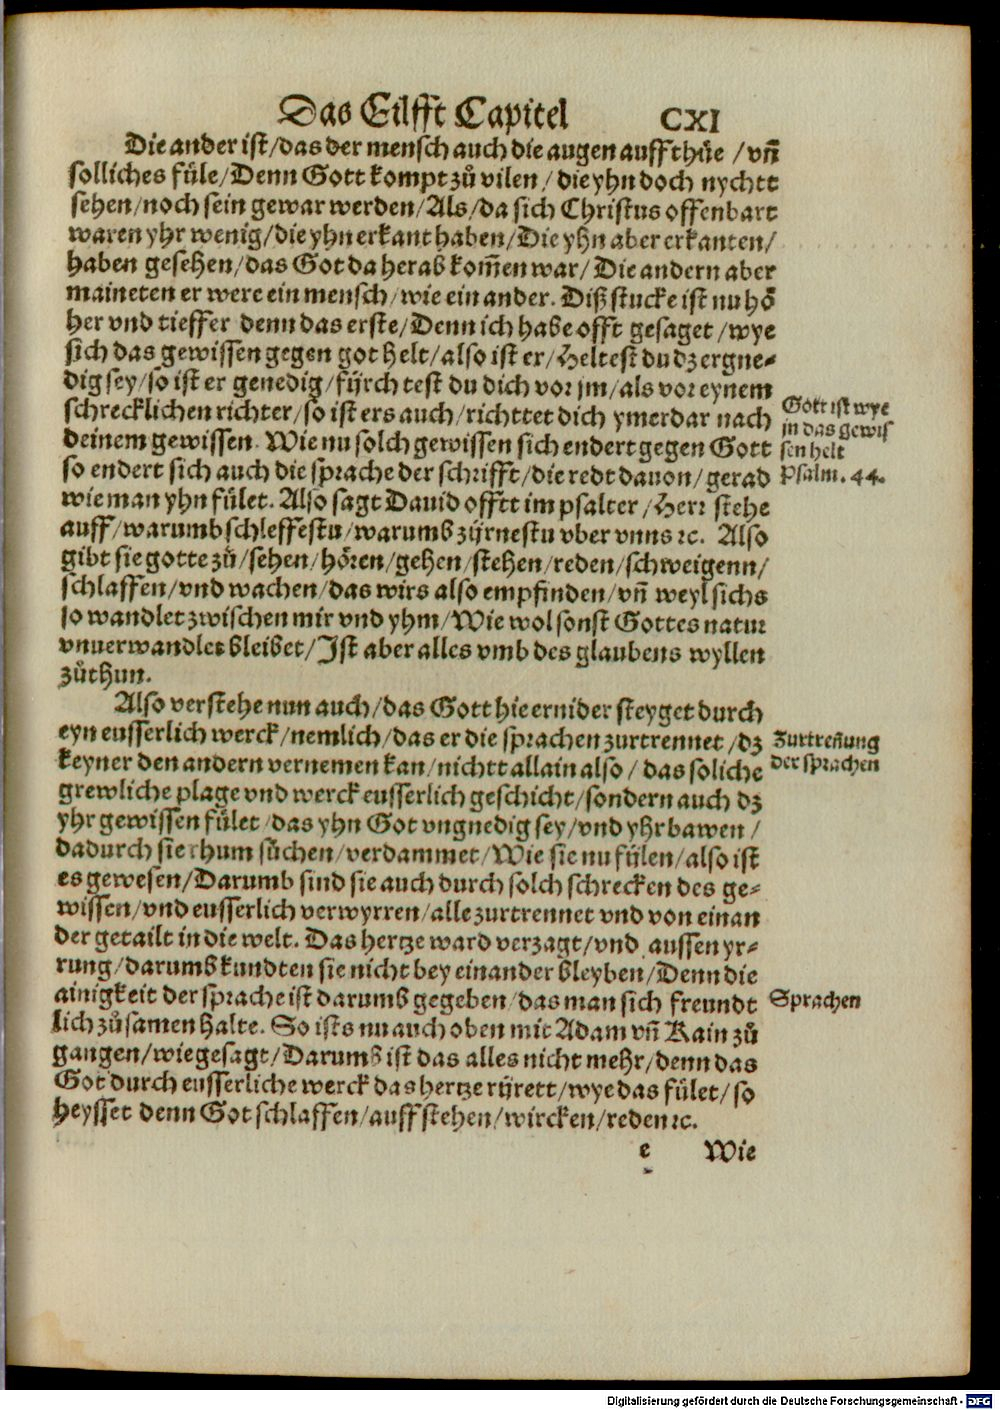 Das Eilfft Capitel CXI
Die ander ist/das der mensch auch die augen auffthüe/vñ
solliches füle/Denn Gott kompt zů vilen/die yhn doch nychtt
sehen/noch sein gewar werden/Als/da sich Christus offenbart
waren yhr wenig/die yhn erkant haben/Die yhn aber erkanten/
haben gesehen/das Got da herab kom̃en war/Die andern aber
maineten er were ein mensch/wie ein ander. Diß stucke ist nu hö
her vnd tieffer denn das erste/Denn ich habe offt gesaget/wye
sich das gewissen gegen got helt/also ist er/Heltest du dz er gne-
dig sey/so ist er genedig/fürchtest du dich vor jm/als vor eynem
schrecklichen richter/so ist ers auch/richttet dich ymerdar nach
deinem gewissen. Wie nu solch gewissen sich endert gegen Gott
so endert sich auch die sprache der schrifft/die redt dauon/gerad
wie man yhn fület. Also sagt Dauid offtt im psalter/Herr stehe
auff/warumb schleffestu/warumb zürnestu vber vnns ꝛc. Also
gibt sie gotte zů/sehen/hören/gehen/stehen/reden/schweigenn/
schlaffen/vnd wachen/das wirs also empfinden/vñ weyl sichs
so wandlet zwischen mir vnd yhm/Wie wol sonst Gottes natur
vnuerwandlet bleibet/Ist aber alles vmb des glaubens wyllen
zůthun.
Gott ist wye
jn das gewis
sen helt
Psalm. 44.
Also verstehe nun auch/das Gott hie ernider steyget durch
eyn eusserlich werck/nemlich/das er die sprachen zurtrennet/dz
keyner den andern vernemen kan/nichtt allain also/das soliche
grewliche plage vnd werck eusserlich geschicht/sondern auch dz
yhr gewissen fület/das yhn Got vngnedig sey/vnd yhr bawen/
dadurch sie rhum süchen/verdammet/Wie sie nu fülen/also ist
es gewesen/Darumb sind sie auch durch solch schrecken des ge-
wissen/vnd eusserlich verwyrren/alle zurtrennet vnd von einan
der getailt in die welt. Das hertze ward verzagt/vnd aussen yr-
rung/darumb kundten sie nicht bey einander bleyben/Denn die
ainigkeit der sprache ist darumb gegeben/das man sich freundt
lich zůsamen halte. So ists nu auch oben mit Adam vñ Kain zů
gangen/wie gesagt/Darumb ist das alles nicht mehr/denn das
Got durch eusserliche werck das hertze rürett/wye das fület/so
heysset denn Got schlaffen/auffstehen/wircken/reden ꝛc.
Zurtreñung
der sprachen
Sprachen
e Wie
Digitalisierung gefördert durch die Deutsche Forschungsgemeinschaft - DFG